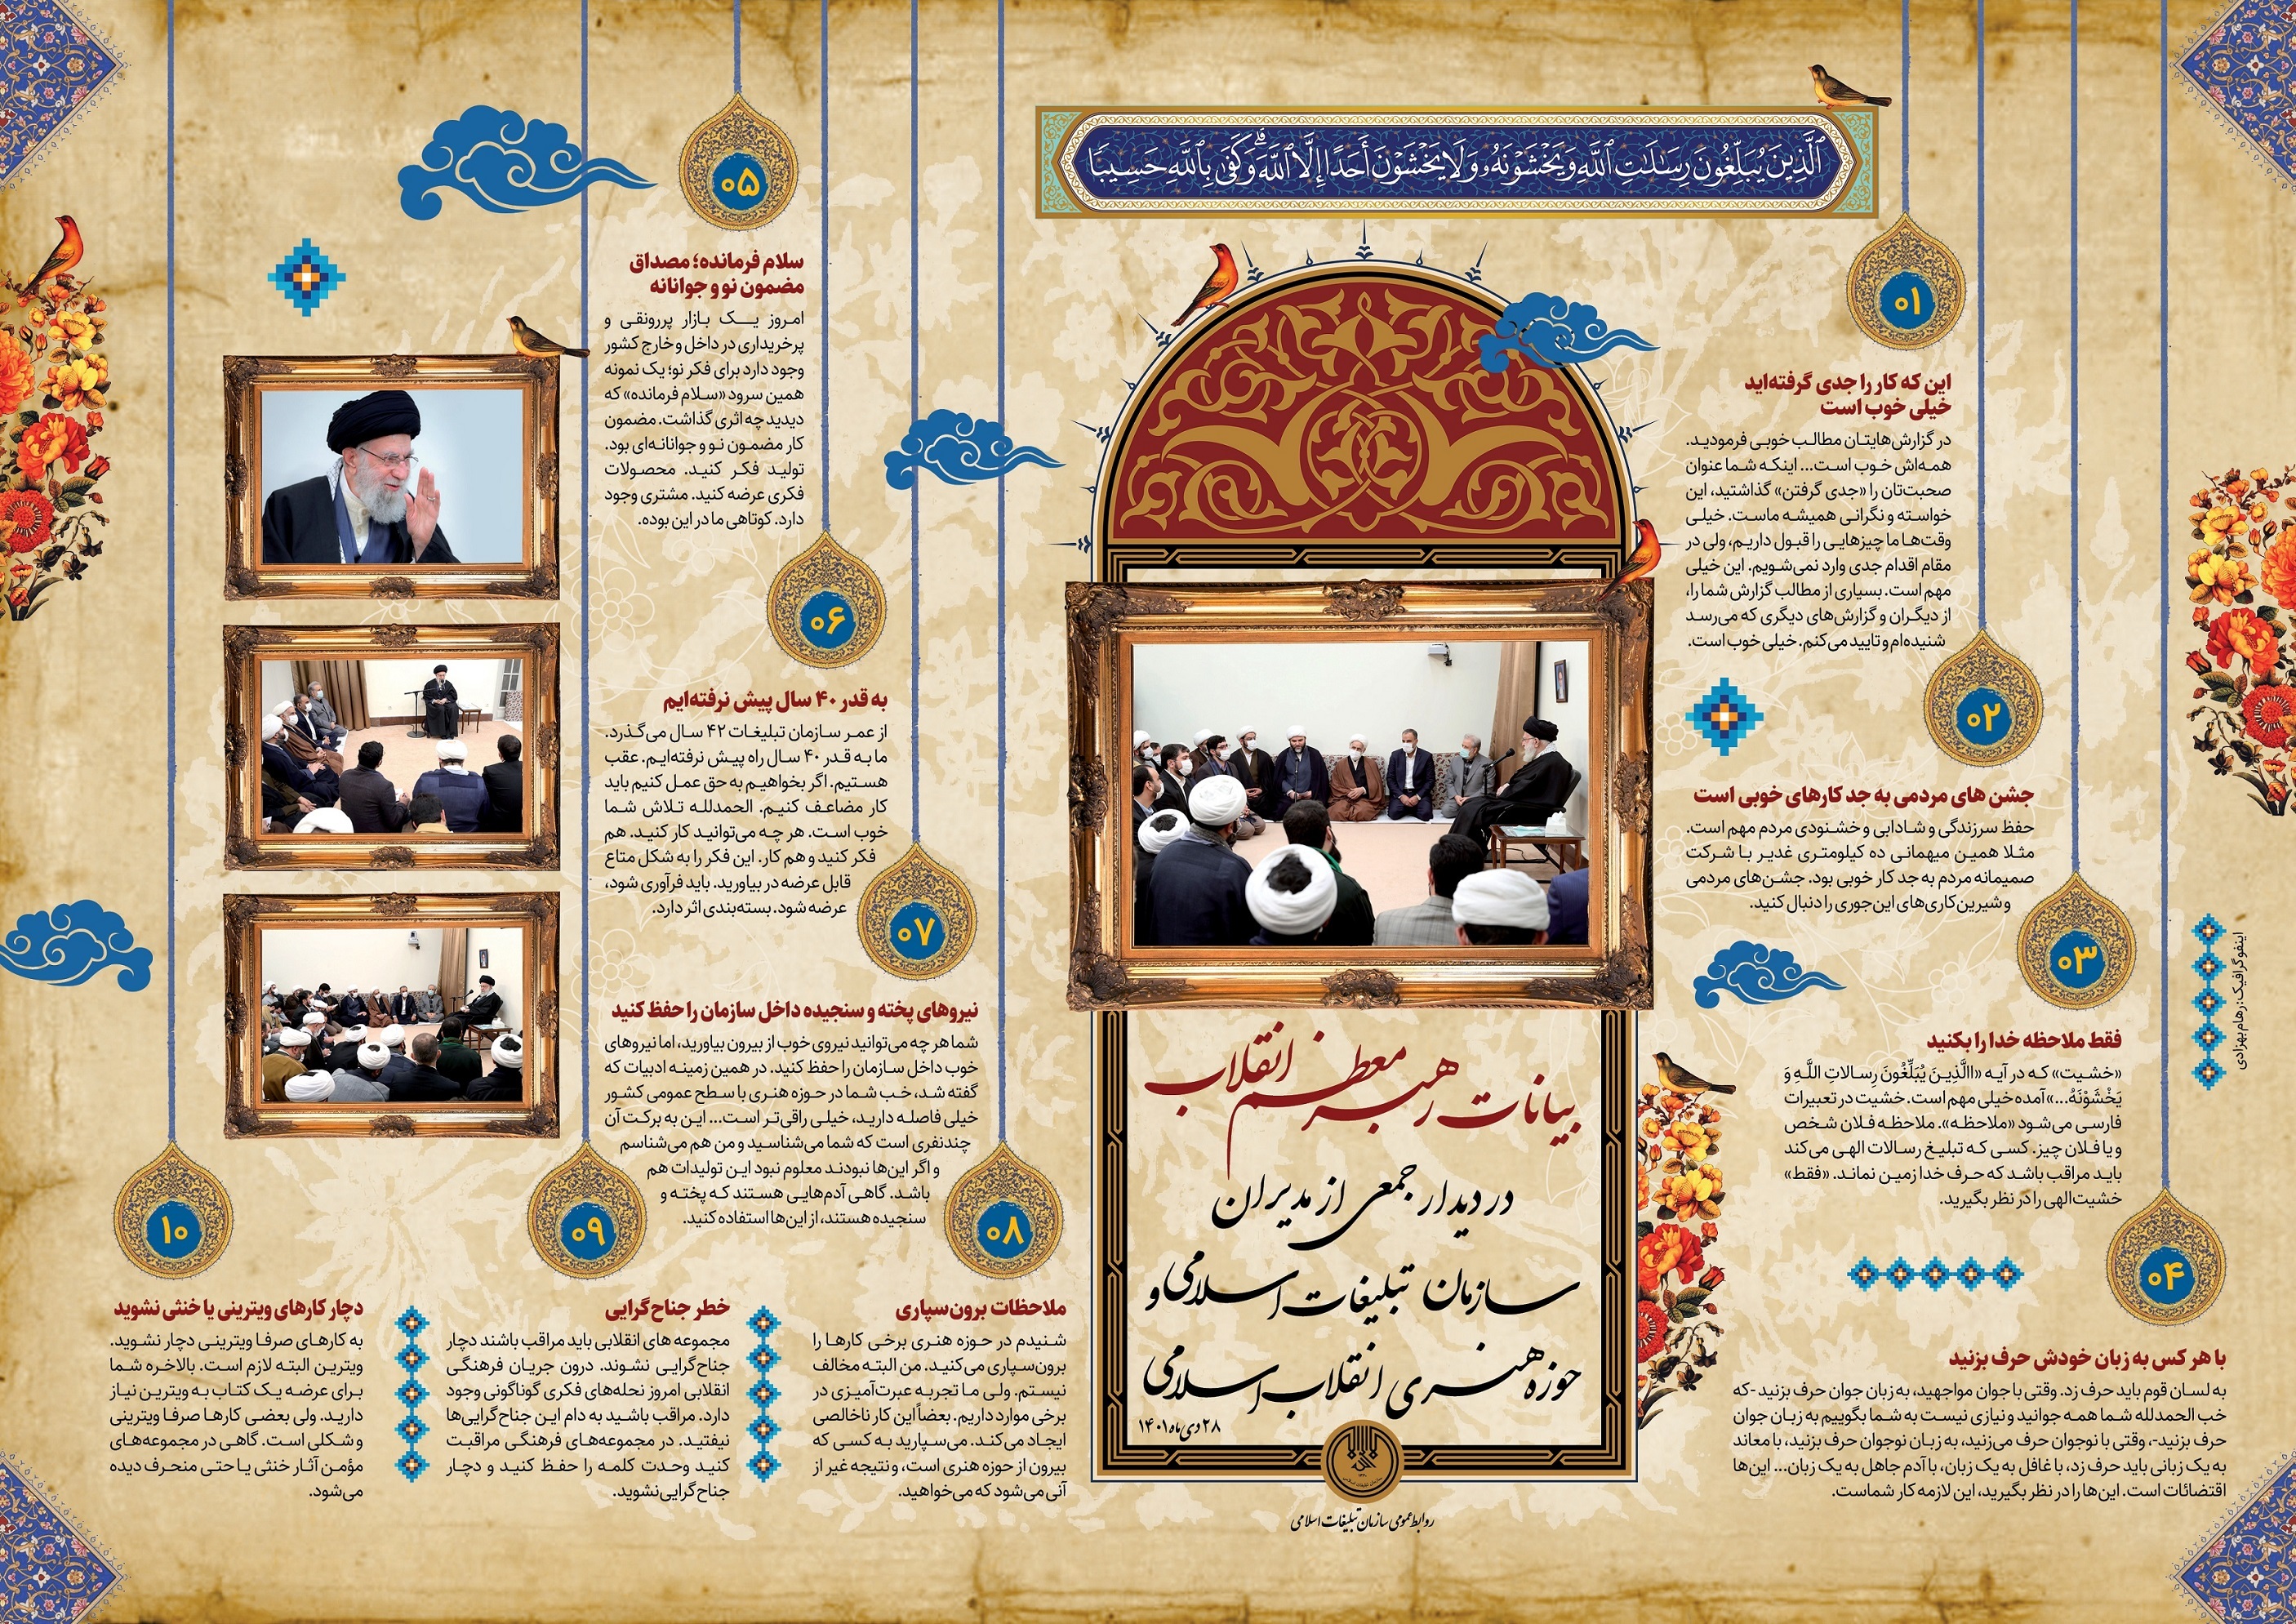 ٱلَّذِينَ يُبَلِّغُونَ رِسَـٰلَـٰتِ ٱللَّهِ وَيَخْشَوْنَهُۥ وَلَا يَخْشَوْنَ أَحَدًا إِلَّا ٱللَّهَ ۗ وَكَفَىٰ بِٱللَّهِ حَسِيبًا
بیانات رهبر معظم انقلاب
در دیدار جمعی از مدیران
سازمان تبلیغات اسلامی و
حوزه هنری انقلاب اسلامی
۲۸ دی ماه ۱۴۰۱
روابط عمومی سازمان تبلیغات اسلامی
۰۱
این که کار را جدی گرفته‌اید
خیلی خوب است
در گزارش‌هایتان مطالب خوبی فرمودید.
همه‌اش خوب است... اینکه شما عنوان
صحبت‌تان را «جدی گرفتن» گذاشتید، این
خواسته و نگرانی همیشه ماست. خیلی
وقت‌ها ما چیزهایی را قبول داریم، ولی در
مقام اقدام جدی وارد نمی‌شویم. این خیلی
مهم است. بسیاری از مطالب گزارش شما را،
از دیگران و گزارش‌های دیگری که می‌رسد
شنیده‌ام و تایید می‌کنم. خیلی خوب است.
۰۲
جشن های مردمی به جد کارهای خوبی است
حفظ سرزندگی و شادابی و خشنودی مردم مهم است.
مثلا همین میهمانی ده کیلومتری غدیر با شرکت
صمیمانه مردم به جد کار خوبی بود. جشن‌های مردمی
و شیرین‌کاری‌های این‌جوری را دنبال کنید.
۰۳
فقط ملاحظه خدا را بکنید
«خشیت» که در آیه «االَّذِینَ یُبَلِّغُونَ رِسالاتِ اللَّهِ وَ
یَخْشَوْنَهُ...» آمده خیلی مهم است. خشیت در تعبیرات
فارسی می‌شود «ملاحظه». ملاحظه فلان شخص
و یا فلان چیز. کسی که تبلیغ رسالات الهی می‌کند
باید مراقب باشد که حرف خدا زمین نماند. «فقط»
خشیت الهی را در نظر بگیرید.
۰۴
با هر کس به زبان خودش حرف بزنید
به لسان قوم باید حرف زد. وقتی با جوان مواجهید، به زبان جوان حرف بزنید -که
خب الحمدلله شما همه جوانید و نیازی نیست به شما بگوییم به زبان جوان
حرف بزنید-، وقتی با نوجوان حرف می‌زنید، به زبان نوجوان حرف بزنید، با معاند
به یک زبانی باید حرف زد، با غافل به یک زبان، با آدم جاهل به یک زبان... این‌ها
اقتضائات است. این‌ها را در نظر بگیرید، این لازمه کار شماست.
اینفوگرافیک: رهام بهزادی
۰۵
سلام فرمانده؛ مصداق
مضمون نو و جوانانه
امروز یک بازار پررونقی و
پرخریداری در داخل و خارج کشور
وجود دارد برای فکر نو؛ یک نمونه
همین سرود «سلام فرمانده» که
دیدید چه اثری گذاشت. مضمون
کار مضمون نو و جوانانه‌ای بود.
تولید فکر کنید. محصولات
فکری عرضه کنید. مشتری وجود
دارد. کوتاهی ما در این بوده.
۰۶
به قدر ۴۰ سال پیش نرفته‌ایم
از عمر سازمان تبلیغات ۴۲ سال می‌گذرد.
ما به قدر ۴۰ سال راه پیش نرفته‌ایم. عقب
هستیم. اگر بخواهیم به حق عمل کنیم باید
کار مضاعف کنیم. الحمدلله تلاش شما
خوب است. هر چه می‌توانید کار کنید. هم
فکر کنید و هم کار. این فکر را به شکل متاع
قابل عرضه در بیاورید. باید فرآوری شود،
عرضه شود. بسته‌بندی اثر دارد.
۰۷
نیروهای پخته و سنجیده داخل سازمان را حفظ کنید
شما هر چه می‌توانید نیروی خوب از بیرون بیاورید، اما نیروهای
خوب داخل سازمان را حفظ کنید. در همین زمینه ادبیات که
گفته شد، خب شما در حوزه هنری با سطح عمومی کشور
خیلی فاصله دارید، خیلی راقی‌تر است... این به برکت آن
چندنفری است که شما می‌شناسید و من هم می‌شناسم
و اگر این‌ها نبودند معلوم نبود این تولیدات هم
باشد. گاهی آدم‌هایی هستند که پخته و
سنجیده هستند، از این‌ها استفاده کنید.
۰۸
ملاحظات برون‌سپاری
شنیدم در حوزه هنری برخی کارها را
برون‌سپاری می‌کنید. من البته مخالف
نیستم. ولی ما تجربه عبرت‌آمیزی در
برخی موارد داریم. بعضاً این کار ناخالصی
ایجاد می‌کند. می‌سپارید به کسی که
بیرون از حوزه هنری است، و نتیجه غیر از
آنی می‌شود که می‌خواهید.
۰۹
خطر جناح‌گرایی
مجموعه های انقلابی باید مراقب باشند دچار
جناح‌گرایی نشوند. درون جریان فرهنگی
انقلابی امروز نحله‌های فکری گوناگونی وجود
دارد. مراقب باشید به دام این جناح‌گرایی‌ها
نیفتید. در مجموعه‌های فرهنگی مراقبت
کنید وحدت کلمه را حفظ کنید و دچار
جناح‌گرایی نشوید.
۱۰
دچار کارهای ویترینی یا خنثی نشوید
به کارهای صرفا ویترینی دچار نشوید.
ویترین البته لازم است. بالاخره شما
برای عرضه یک کتاب به ویترین نیاز
دارید. ولی بعضی کارها صرفا ویترینی
و شکلی است. گاهی در مجموعه‌های
مؤمن آثار خنثی یا حتی منحرف دیده
می‌شود.